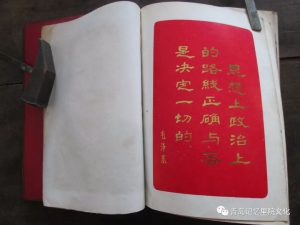 思想上政治上
的路线正确与否
是决定一切的。
毛泽东
青岛记忆里院文化